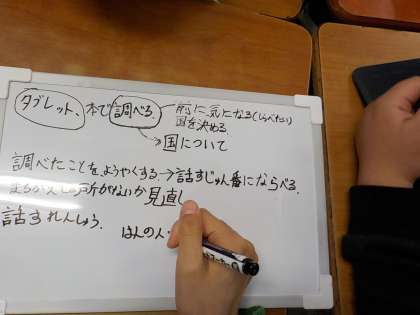 タブレット、本で調べる。
前に気になる(しらべたい)
国を決める。
国について
調べたことを、ようやくする→話すじゅん番にならべる。
まちがえの所がないか見直し
話すれんしゅう。
はんの人・